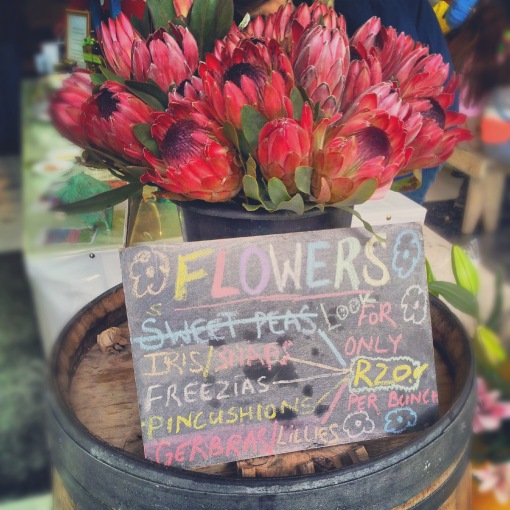 FLOWERS
SWEET PEAS LOOK FOR
IRIS/SNAPS ONLY
FREEZIAS R20
PINCUSHIONS PER BUNCH
GERBRAS/LILLIES